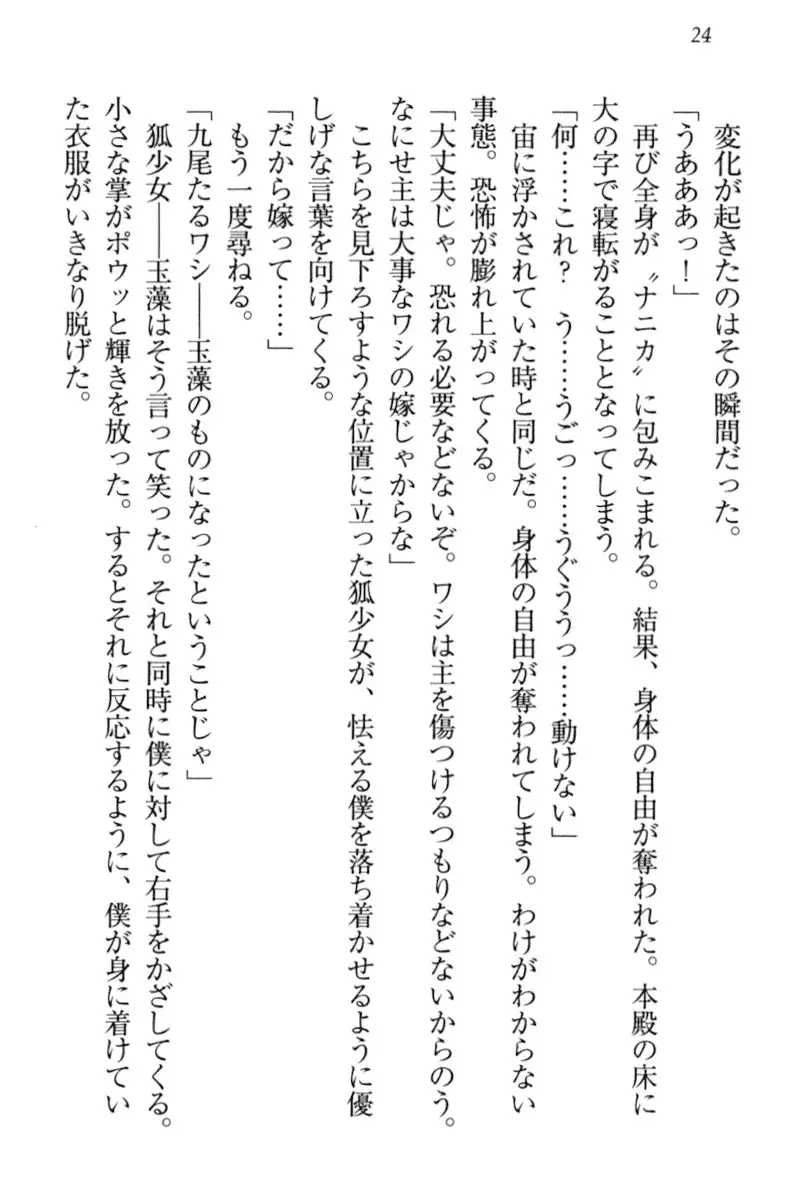 24
変化が起きたのはその瞬間だった。
「うあああっ！」
再び全身が〝ナニカ〟に包みこまれる。結果、身体の自由が奪われた。本殿の床に
大の字で寝転がることとなってしまう。
「何……これ？　う……うごっ……うぐううっ……動けない」
宙に浮かされていた時と同じだ。身体の自由が奪われてしまう。わけがわからない
事態。恐怖が膨れ上がってくる。
「大丈夫じゃ。恐れる必要などないぞ。ワシは主を傷つけるつもりなどないからのう。
なにせ主は大事なワシの嫁じゃからな」
こちらを見下ろすような位置に立った狐少女が、怯える僕を落ち着かせるように優
しげな言葉を向けてくる。
「だから嫁って……」
もう一度尋ねる。
「九尾たるワシ――玉藻のものになったということじゃ」
狐少女――玉藻はそう言って笑った。それと同時に僕に対して右手をかざしてくる。
小さな掌がポウッと輝きを放った。するとそれに反応するように、僕が身に着けてい
た衣服がいきなり脱げた。